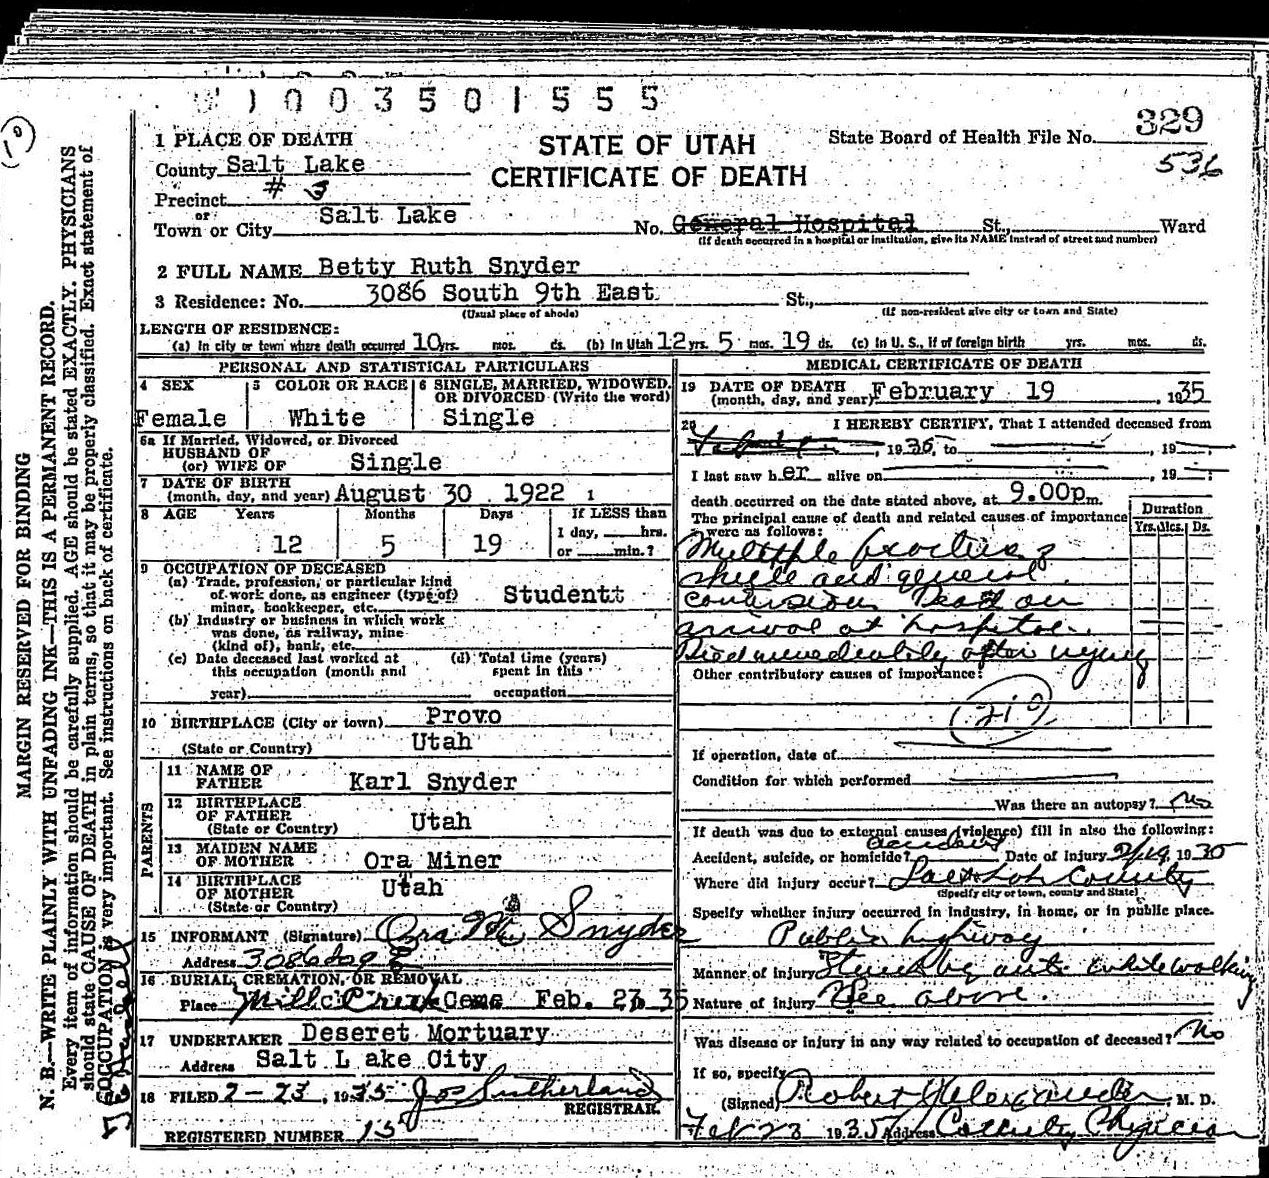 1003501555
1 PLACE OF DEATH
STATE OF UTAH
CERTIFICATE OF DEATH
State Board of Health File No. 329
536
County Salt Lake
Precinct # 3
or
Town or City Salt Lake
No. General Hospital St., Ward
(If death occurred in a hospital or institution, give its NAME instead of street and number)
2 FULL NAME Betty Ruth Snyder
3 Residence: No. 3086 South 9th East St.,
(Usual place of abode) (If non-resident give city or town and State)
LENGTH OF RESIDENCE:
(a) In city or town where death occurred 10 yrs. mos. ds. (b) In Utah 12 yrs. 5 mos. 19 ds. (c) In U. S., if of foreign birth yrs. mos. ds.
PERSONAL AND STATISTICAL PARTICULARS
4 SEX
Female
5 COLOR OR RACE
White
6 SINGLE, MARRIED, WIDOWED, OR DIVORCED (Write the word)
Single
6a If Married, Widowed, or Divorced
HUSBAND OF
(or) WIFE OF Single
7 DATE OF BIRTH
(month, day, and year) August 30 . 1922
8 AGE Years Months Days If LESS than
1 day, hrs.
12 5 19 or min.?
9 OCCUPATION OF DECEASED
(a) Trade, profession, or particular kind
of work done, as engineer (type of)
miner, bookkeeper, etc. Studentt
(b) Industry or business in which work
was done, as railway, mine
(kind of), bank, etc.
(c) Date deceased last worked at
this occupation (month and
year)
(d) Total time (years)
spent in this
occupation
10 BIRTHPLACE (City or town) Provo
(State or Country) Utah
PARENTS
11 NAME OF
FATHER Karl Snyder
12 BIRTHPLACE
OF FATHER
(State or Country) Utah
13 MAIDEN NAME
OF MOTHER Ora Miner
14 BIRTHPLACE
OF MOTHER
(State or Country) Utah
15 INFORMANT (Signature) Ora M. Snyder
Address 3086 So 9 E
16 BURIAL, CREMATION, OR REMOVAL
Place Mill Creek Cem Feb. 23 35
17 UNDERTAKER Deseret Mortuary
Address Salt Lake City
18 FILED 2-23, 1935 Jos Sutherland
REGISTRAR.
REGISTERED NUMBER 15
MEDICAL CERTIFICATE OF DEATH
19 DATE OF DEATH
(month, day, and year) February 19 , 1935
20 I HEREBY CERTIFY, That I attended deceased from
, 1935, to , 19
I last saw her alive on , 19 ;
death occurred on the date stated above, at 9.00p m.
The principal cause of death and related causes of importance
were as follows:
Duration
Yrs. Mos. Ds.
Multiple fractures
skull and general
contusions Dead on
arrival at hospital.
Died immediately after injury
Other contributory causes of importance:
210
If operation, date of
Condition for which performed
Was there an autopsy? No
If death was due to external causes (violence) fill in also the following:
Accident, suicide, or homicide? accident Date of injury 2/19, 1935
Where did injury occur? Salt Lake County
(Specify city or town, county and State)
Specify whether injury occurred in industry, in home, or in public place.
Public highway
Manner of injury Struck by auto while walking
Nature of injury See above.
Was disease or injury in any way related to occupation of deceased? No
If so, specify
(Signed) Robert Alexander, M. D.
Feb 23 1935 Address County Physician
MARGIN RESERVED FOR BINDING
N. B.—WRITE PLAINLY WITH UNFADING INK—THIS IS A PERMANENT RECORD.
Every item of information should be carefully supplied. AGE should be stated EXACTLY. PHYSICIANS
should state CAUSE OF DEATH in plain terms, so that it may be properly classified. Exact statement of
OCCUPATION is very important. See instructions on back of certificate.